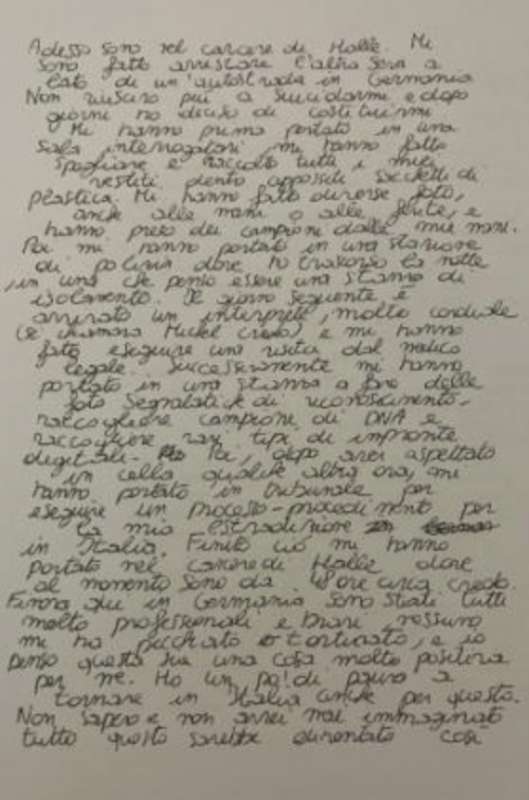 Adesso sono nel carcere di Halle. Mi
sono fatto arrestare l'altra sera a
lato di un'autostrada in Germania
Non riuscivo più a suicidarmi e dopo
giorni ho deciso di costituirmi
Mi hanno prima portato in una
sala interrogatori, mi hanno fatto
spogliare e raccolto tutti i miei
vestiti dentro appositi sacchetti di
plastica. Mi hanno fatto diverse foto,
anche alle mani o alle ferite, e
hanno preso dei campioni dalle mie mani.
Poi mi hanno portato in una stazione
di polizia dove ho trascorso la notte
in una che penso essere una stanza di
isolamento. Il giorno seguente è
arrivato un interprete, molto cordiale
(si chiamava Michel credo) e mi hanno
fatto eseguire una visita dal medico
legale. Successivamente mi hanno
portato in una stanza a fare delle
foto segnaletiche di riconoscimento,
raccogliere campioni di DNA e
raccogliere vari tipi di impronte
digitali. Poi, dopo aver aspettato
in cella qualche altra ora, mi
hanno portato in tribunale per
eseguire un processo-procedimento per
la mia estradizione
in Italia. Finito ciò mi hanno
portato nel carcere di Halle dove
al momento sono da ore circa credo.
Finora qui in Germania sono stati tutti
molto professionali e bravi, nessuno
mi ha picchiato o torturato, e io
penso questa sia una cosa molto positiva
per me. Ho un po' di paura a
tornare in Italia anche per questo.
Non sapevo e non avrei mai immaginato
tutto questo sarebbe diventato così